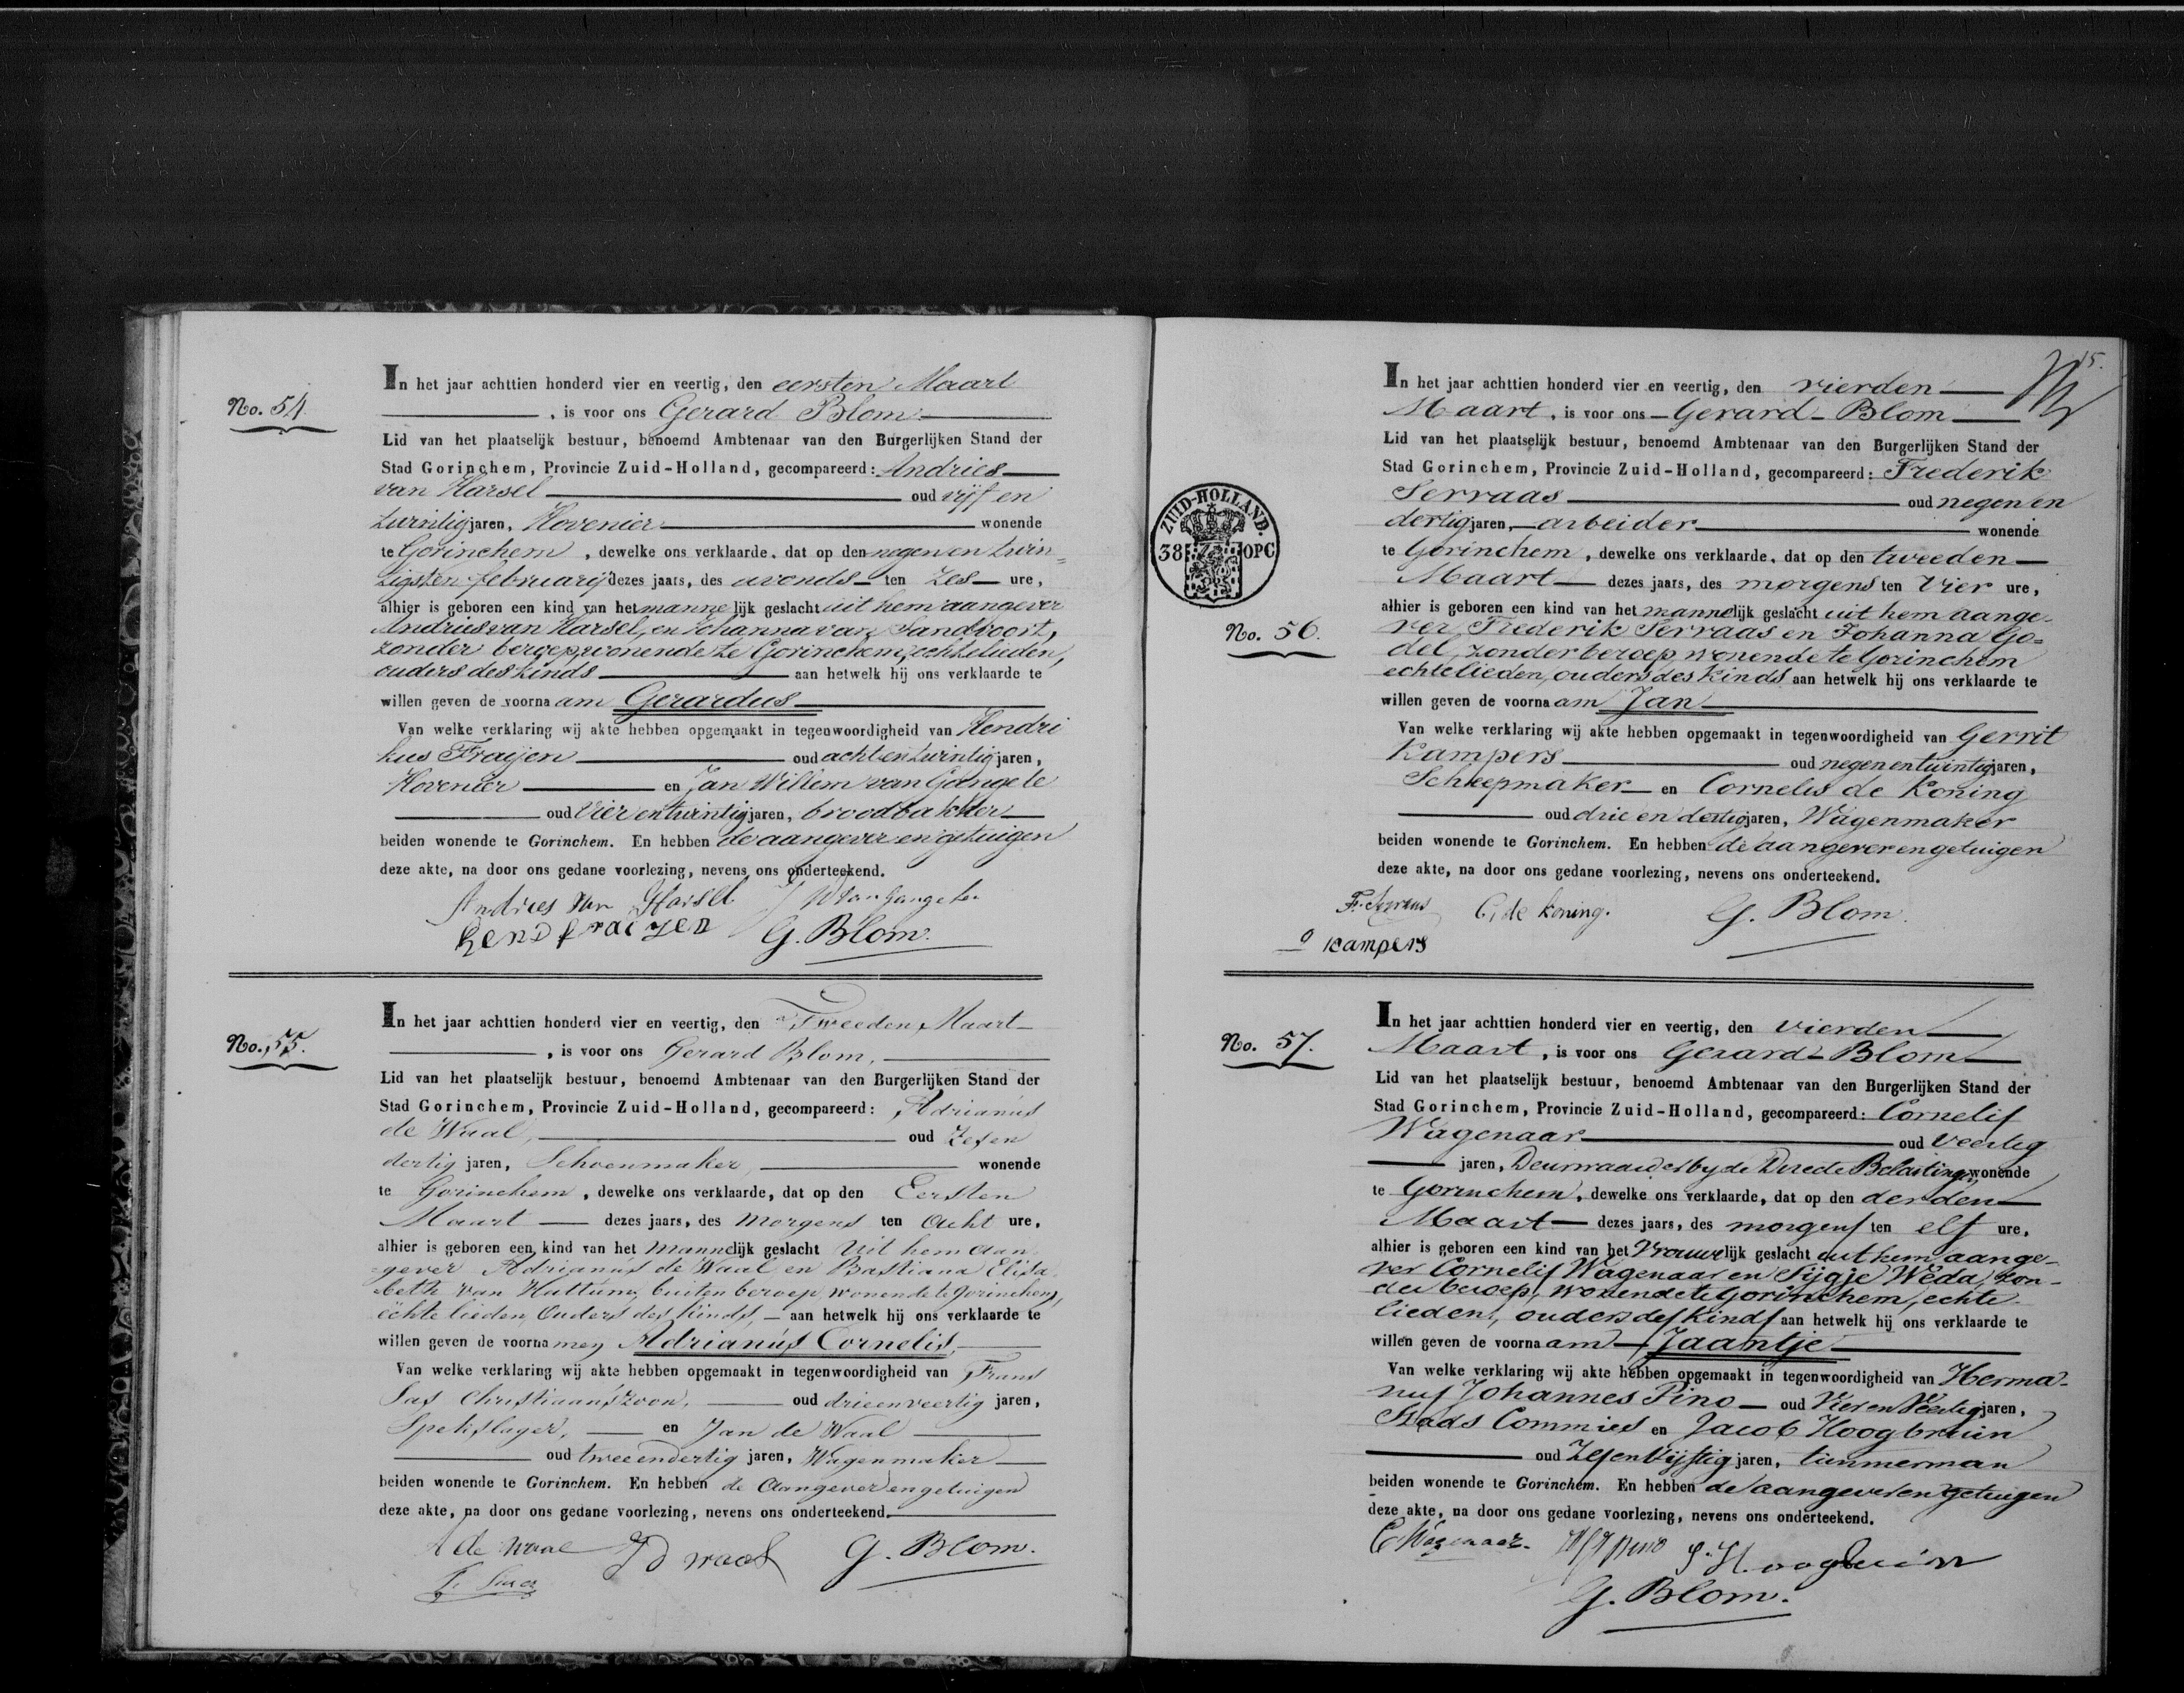 No. 54.
In het jaar achttien honderd vier en veertig, den eersten Maart
, is voor ons Gerard Blom
Lid van het plaatselijk bestuur, benoemd Ambtenaar van den Burgerlijken Stand der
Stad Gorinchem, Provincie Zuid-Holland, gecompareerd: Andries
van Harsel oud vijf en
twintig jaren, Hovenier wonende
te Gorinchem, dewelke ons verklaarde, dat op den negen en twin=
tigsten februarij dezes jaars, des avonds ten zes ure,
alhier is geboren een kind van het mannelijk geslacht uit hem aangever
Andries van Harsel, en Johanna van Sandvoort,
zonder beroep, wonende te Gorinchem, echtelieden,
ouders des kinds aan hetwelk hij ons verklaarde te
willen geven de voornaam Gerardus
Van welke verklaring wij akte hebben opgemaakt in tegenwoordigheid van Hendri
kus Fraijen oud acht en twintig jaren,
Hovenier en Jan Willem van Gangele
oud vier en twintig jaren, broodbakker
beiden wonende te Gorinchem. En hebben de aangever en getuigen
deze akte, na door ons gedane voorlezing, nevens ons onderteekend.
Andries van Harsel J W van Gangele
hend fraijen G. Blom.
No. 55.
In het jaar achttien honderd vier en veertig, den Tweeden Maart
, is voor ons Gerard Blom,
Lid van het plaatselijk bestuur, benoemd Ambtenaar van den Burgerlijken Stand der
Stad Gorinchem, Provincie Zuid-Holland, gecompareerd: Adrianus
de Waal, oud zesen
dertig jaren, Schoenmaker, wonende
te Gorinchem, dewelke ons verklaarde, dat op den Eersten
Maart dezes jaars, des Morgens ten Acht ure,
alhier is geboren een kind van het Mannelijk geslacht Uit hem aan
gever Adrianus de Waal en Bastiana Elisa
beth van Hattum, buiten beroep, wonende te Gorinchem,
echte lieden, Ouders des Kinds, aan hetwelk hij ons verklaarde te
willen geven de voornamen Adrianus Cornelis,
Van welke verklaring wij akte hebben opgemaakt in tegenwoordigheid van Frans
Sas Christiaanszoon, oud drieenveertig jaren,
Spekslager, en Jan de Waal
oud tweeendertig jaren, Wagenmaker
beiden wonende te Gorinchem. En hebben de Aangever en getuigen
deze akte, na door ons gedane voorlezing, nevens ons onderteekend.
A de Waal J d waal G. Blom.
15.
ZUID-HOLLAND.
38 OPC
No. 56.
In het jaar achttien honderd vier en veertig, den vierden
Maart, is voor ons Gerard Blom
Lid van het plaatselijk bestuur, benoemd Ambtenaar van den Burgerlijken Stand der
Stad Gorinchem, Provincie Zuid-Holland, gecompareerd: Frederik
Serraas oud negen en
dertig jaren, arbeider wonende
te Gorinchem, dewelke ons verklaarde, dat op den tweeden
Maart dezes jaars, des morgens ten Vier ure,
alhier is geboren een kind van het mannelijk geslacht uit hem aange-
ver Frederik Serraas en Johanna Go=
del, zonder beroep, wonende te Gorinchem
echtelieden, ouders des Kinds aan hetwelk hij ons verklaarde te
willen geven de voornaam Jan
Van welke verklaring wij akte hebben opgemaakt in tegenwoordigheid van Gerrit
Kampers oud negen en twintig jaren,
Scheepmaker en Cornelis de Koning
oud drie en dertig jaren, Wagenmaker
beiden wonende te Gorinchem. En hebben de aangever en getuigen
deze akte, na door ons gedane voorlezing, nevens ons onderteekend.
F. Serraas C, de Koning. G. Blom.
g kampers
No. 57.
In het jaar achttien honderd vier en veertig, den vierden
Maart, is voor ons Gerard Blom
Lid van het plaatselijk bestuur, benoemd Ambtenaar van den Burgerlijken Stand der
Stad Gorinchem, Provincie Zuid-Holland, gecompareerd: Cornelis
Wagenaar oud Veertig
jaren, Deurwaarder by de Directe Belasting, wonende
te Gorinchem, dewelke ons verklaarde, dat op den derden
Maart dezes jaars, des morgens ten elf ure,
alhier is geboren een kind van het Vrouwelijk geslacht uit hem aange-
ver Cornelis Wagenaar en Sijgje Weda, zon-
der beroep, wonende te Gorinchem, echte-
lieden, ouders des Kinds aan hetwelk hij ons verklaarde te
willen geven de voornaam Jaantje
Van welke verklaring wij akte hebben opgemaakt in tegenwoordigheid van Herma-
nus Johannes Pino oud Vier en Veertig jaren,
Stads Commies en Jacob Hoogbruin
oud Zes en Vijftig jaren, timmerman
beiden wonende te Gorinchem. En hebben de aangever en getuigen
deze akte, na door ons gedane voorlezing, nevens ons onderteekend.
C Wagenaar. H J Pino J. Hoogbruin
G. Blom.